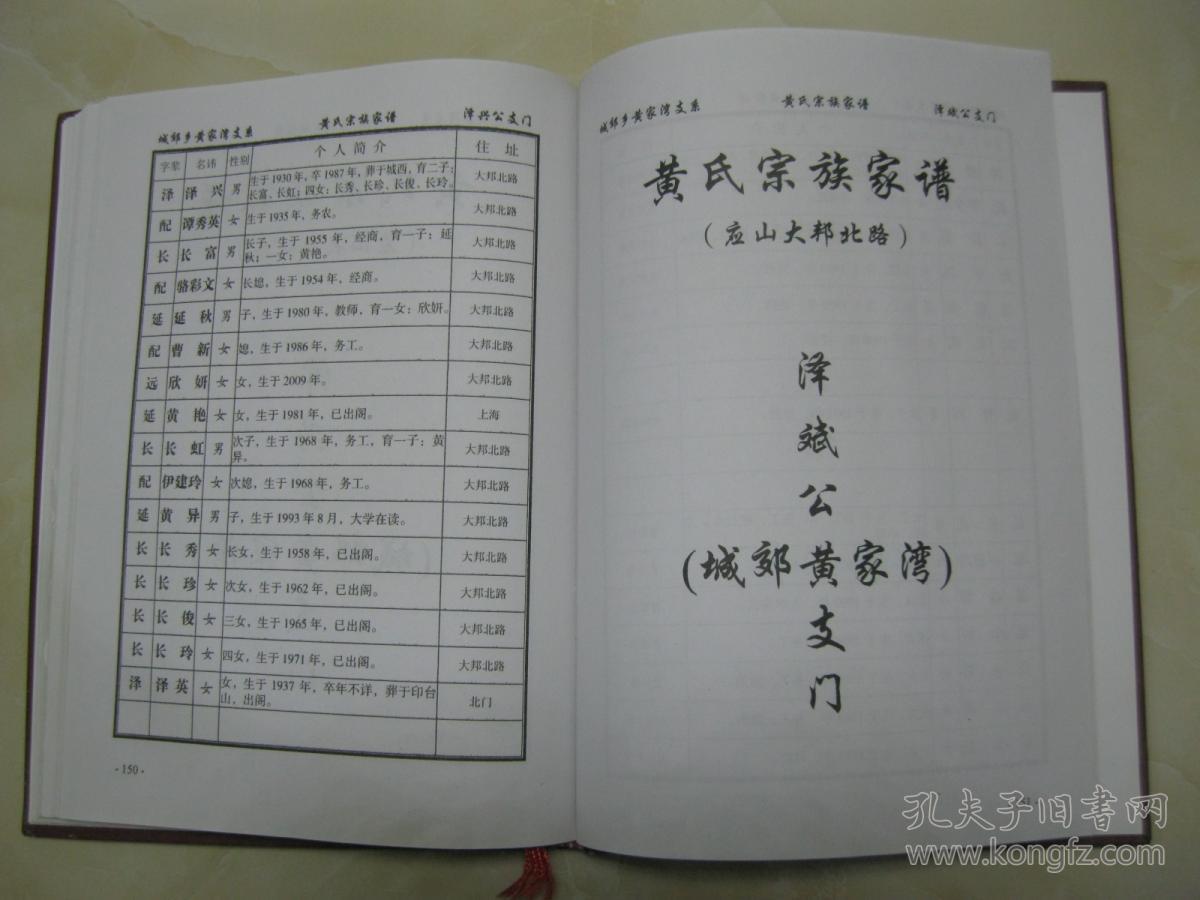 城郊乡黄家湾支系 黄氏宗族家谱 泽兴公支门
字辈 名讳 性别 个人简介 住址
泽 泽兴 男 生于1930年，卒1987年，葬于城西，育二子；
长富、长虹；四女；长秀、长珍、长俊、长玲。 大邦北路
配 谭秀英 女 生于1935年，务农。 大邦北路
长 长富 男 长子，生于1955年，经商，育一子；延
秋；一女；黄艳。 大邦北路
配 骆彩文 女 长媳，生于1954年，经商。 大邦北路
延 延秋 男 子，生于1980年，教师，育一女；欣妍。 大邦北路
配 曹新 女 媳，生于1986年，务工。 大邦北路
远 欣妍 女 女，生于2009年。 大邦北路
延 黄艳 女 女，生于1981年，已出阁。 上海
长 长虹 男 次子，生于1968年，务工，育一子；黄
异。 大邦北路
配 伊建玲 女 次媳，生于1968年，务工。 大邦北路
延 黄异 男 子，生于1993年8月，大学在读。 大邦北路
长 长秀 女 长女，生于1958年，已出阁。 大邦北路
长 长珍 女 次女，生于1962年，已出阁。 大邦北路
长 长俊 女 三女，生于1965年，已出阁。 大邦北路
长 长玲 女 四女，生于1971年，已出阁。 大邦北路
泽 泽英 女 女，生于1937年，卒年不详，葬于印台
山，出阁。 北门
- 150 -
城郊乡黄家湾支系 黄氏宗族家谱 泽斌公支门
黄氏宗族家谱
（应山大邦北路）
泽斌公
（城郊黄家湾）
支门
孔夫子旧书网
www.kongfz.com